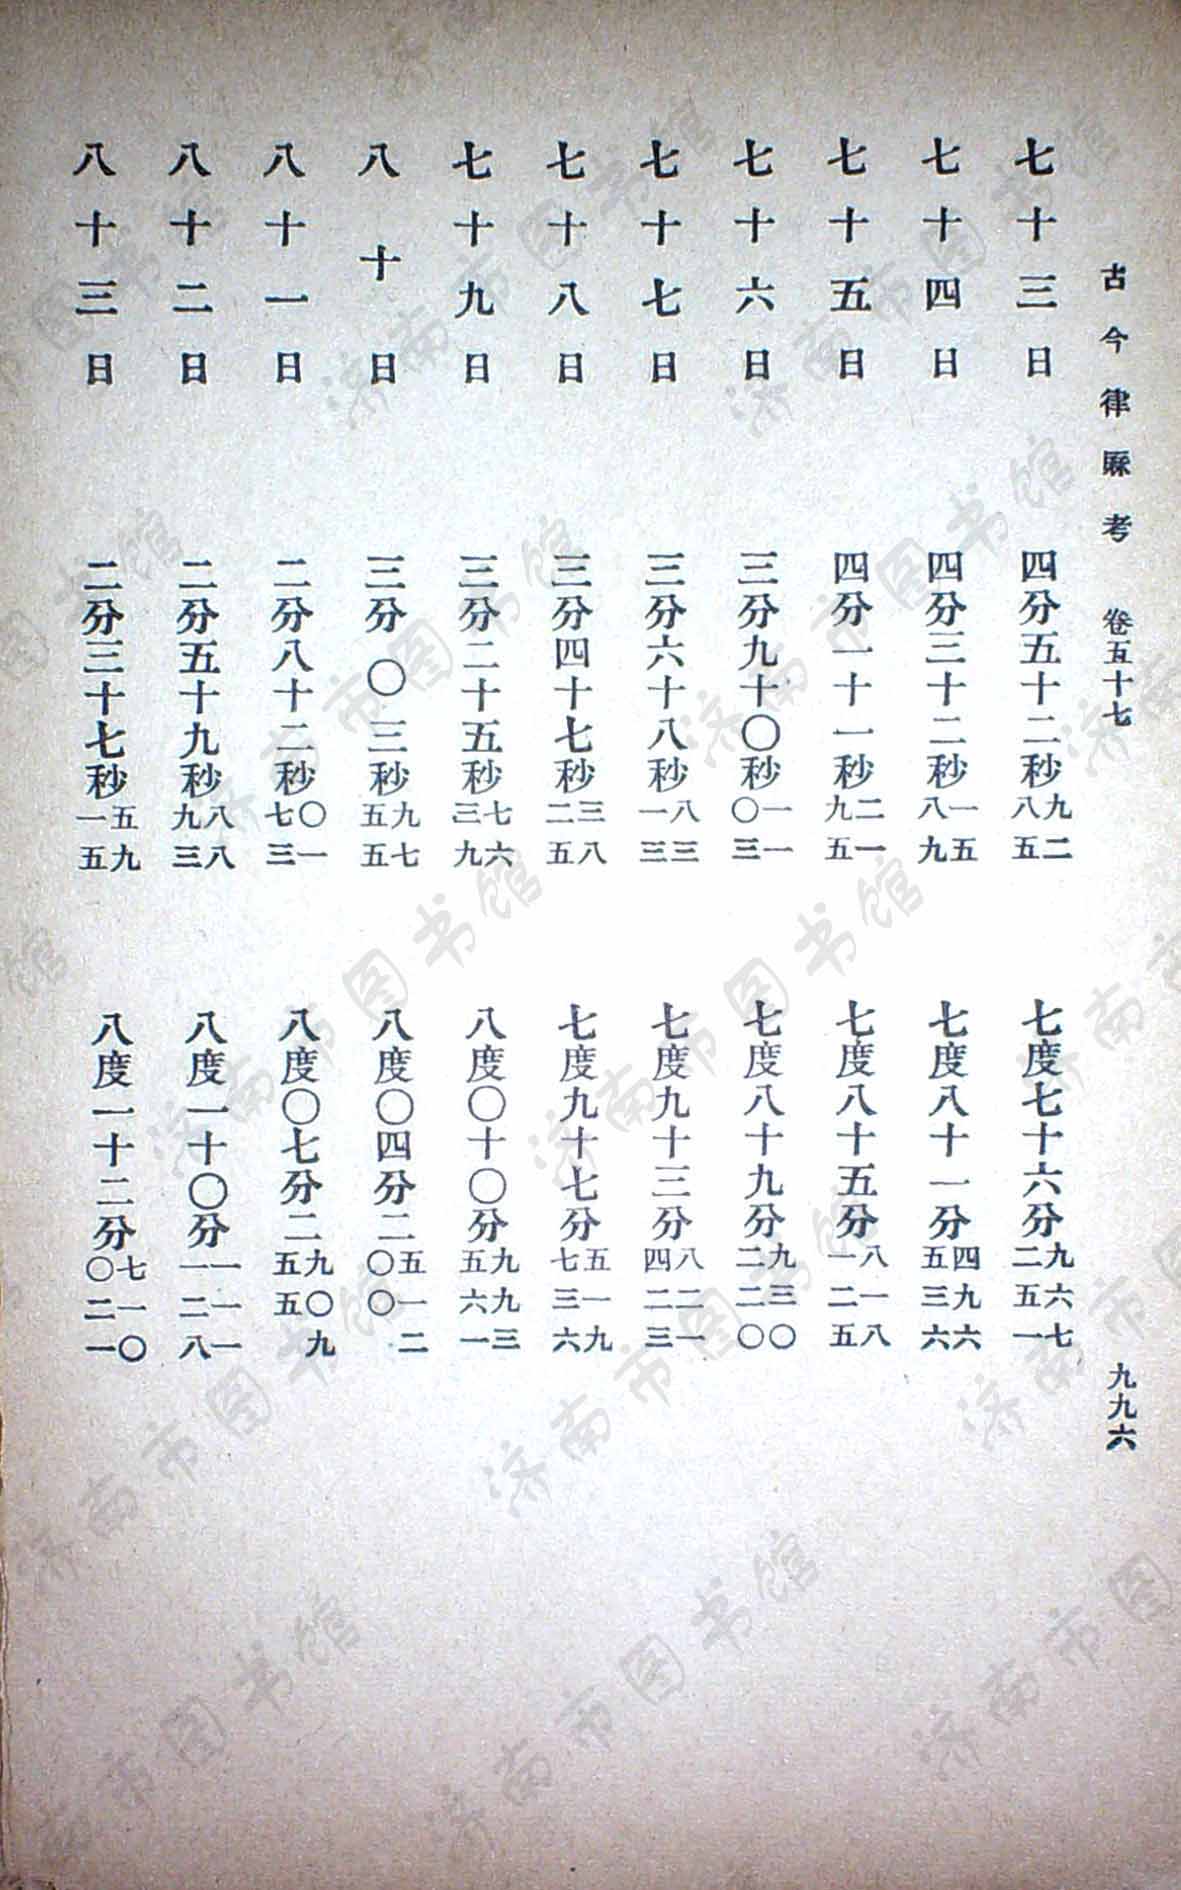 古今律厤考 卷五十七 九九六
七十三日 四分五十二秒九二八五 七度七十六分九六七二五一
七十四日 四分三十二秒一五八九 七度八十一分四九六五三六
七十五日 四分一十一秒二一九五 七度八十五分八一八一二五
七十六日 三分九十〇秒一一〇三 七度八十九分九三〇二二〇
七十七日 三分六十八秒八三一三 七度九十三分八二一四二三
七十八日 三分四十七秒三八二五 七度九十七分五一九七三六
七十九日 三分二十五秒七六三九 八度〇十〇分九九三五六一
八十日 三分〇三秒九七五五 八度〇四分二五一二〇〇
八十一日 二分八十二秒〇一七三 八度〇七分二九〇九五五
八十二日 二分五十九秒八八九三 八度一十〇分一一一一二八
八十三日 二分三十七秒五九一五 八度一十二分七一〇〇二一
济南市图书馆